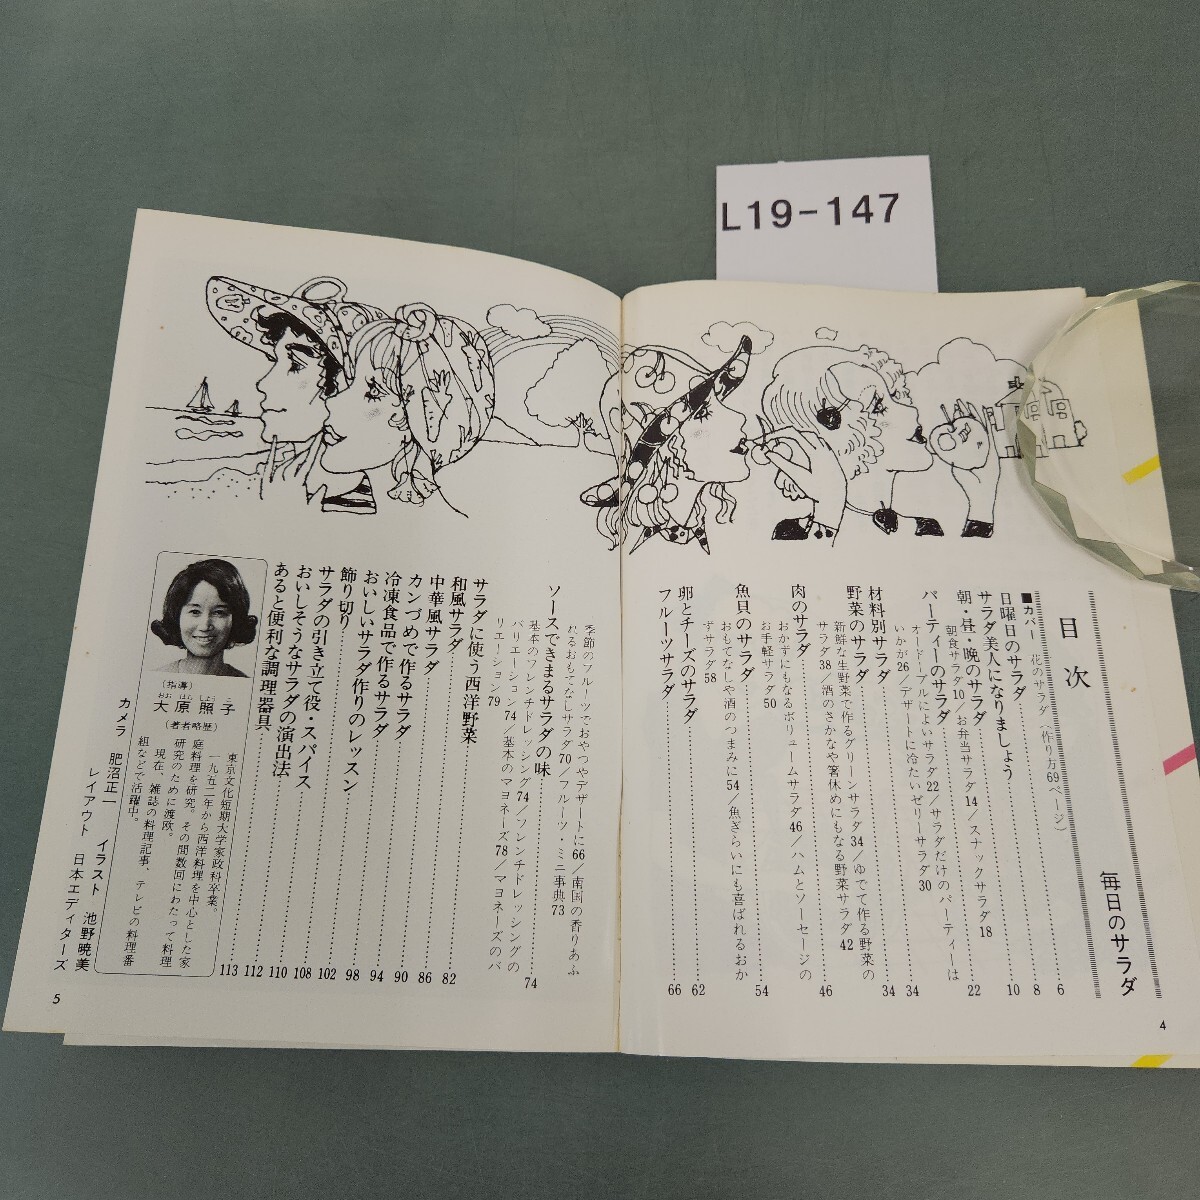 L19-147
毎日のサラダ
目次
■カバー 花のサラダ(作り方69ページ)
日曜日のサラダ……6
サラダ美人になりましょう……8
朝・昼・晩のサラダ……10
朝食サラダ10/お弁当サラダ14/スナックサラダ18
パーティーのサラダ……22
オードーブルによいサラダ22/サラダだけのパーティーは
いかが26/デザートに冷たいゼリーサラダ30
材料別サラダ……34
野菜のサラダ……34
新鮮な生野菜で作るグリーンサラダ34/ゆでて作る野菜の
サラダ38/酒のさかなや箸休めにもなる野菜サラダ42
肉のサラダ……46
おかずにもなるボリュームサラダ46/ハムとソーセージの
お手軽サラダ50
魚貝のサラダ……54
おもてなしや酒のつまみに54/魚ぎらいにも喜ばれるおか
ずサラダ58
卵とチーズのサラダ……62
フルーツサラダ……66
4
季節のフルーツでおやつやデザートに66/南国の香りあふ
れるおもてなしサラダ70/フルーツ・ミニ事典73
ソースできまるサラダの味……74
基本のフレンチドレッシング74/フレンチドレッシングの
バリエーション74/基本のマヨネーズ78/マヨネーズのバ
リエーション79
サラダに使う西洋野菜……82
和風サラダ……86
中華風サラダ……90
カンづめで作るサラダ……94
冷凍食品で作るサラダ……98
おいしいサラダ作りのレッスン……102
飾り切り……108
サラダの引き立て役・スパイス……110
おいしそうなサラダの演出法……112
あると便利な調理器具……113
(指導)
大原照子
おおはらしょうこ
(著者略歴)
東京文化短期大学家政科卒業。
一九五二年から西洋料理を中心とした家
庭料理を研究。その間数回にわたって料理
研究のために渡欧。
現在、雑誌の料理記事、テレビの料理番
組などで活躍中。
カメラ 肥沼正一 イラスト 池野暁美
レイアウト 日本エディターズ
5